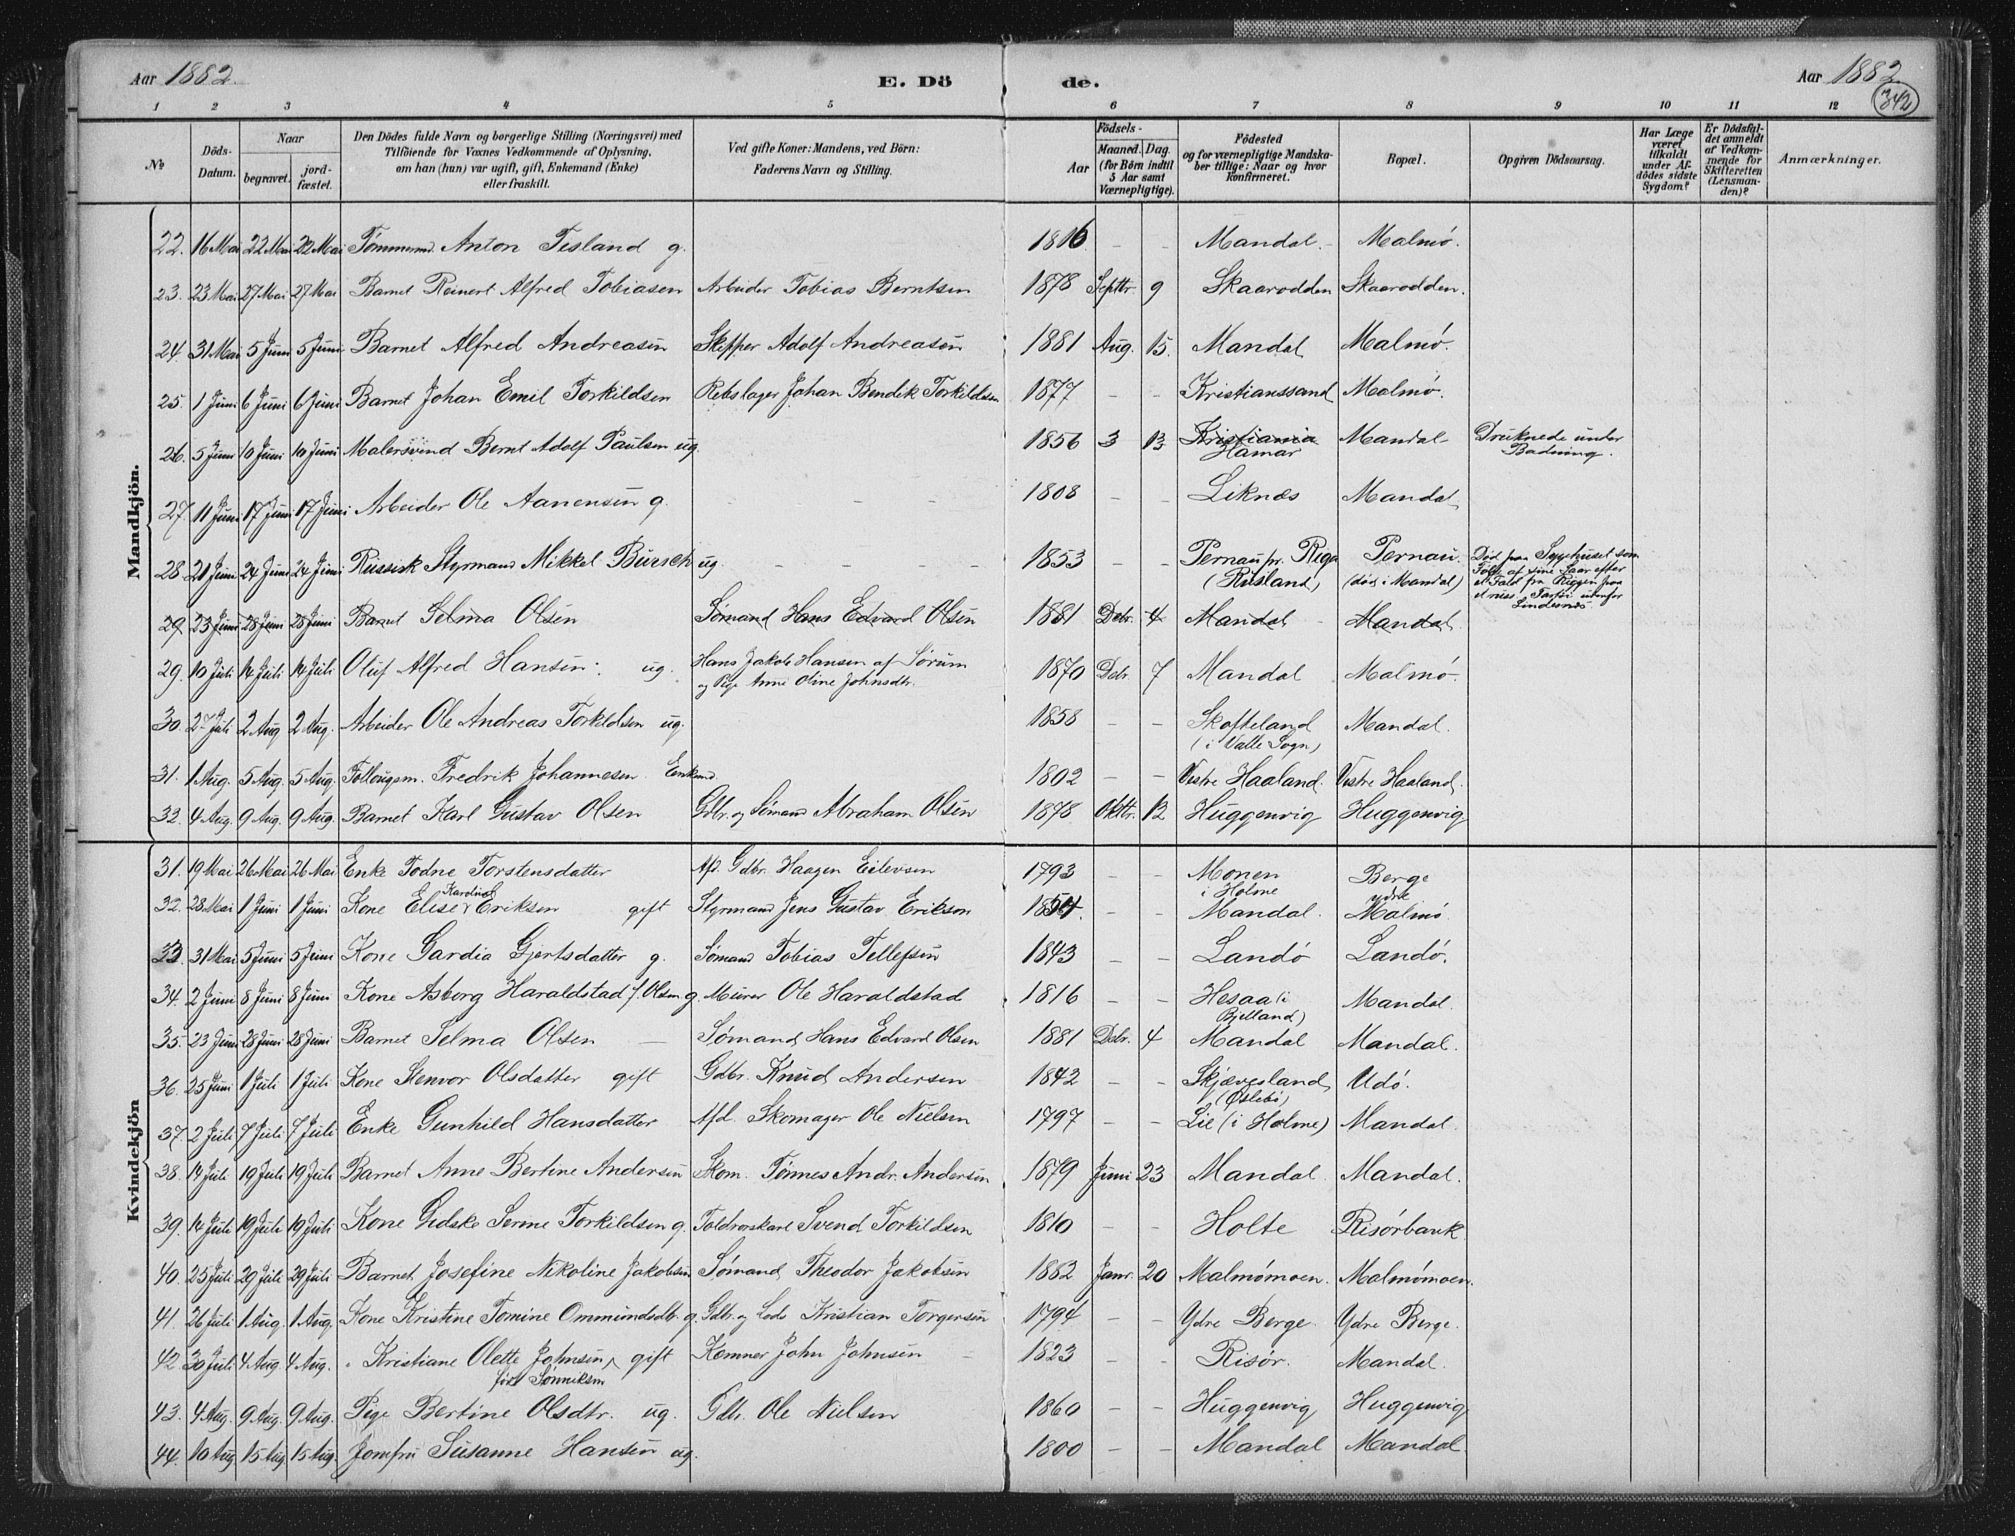 Aar 1882.
E. Dö
de.
Aar 1882
342
1 2 3 4 5 6 7 8 9 10 11 12
№
Döds-Datum.
Naar
begravet.
jordfæstet.
Den Dödes fulde Navn og borgerlige Stilling (Næringsvei) med
Tilföiende for Voxnes Vedkommende af Oplysning,
om han (hun) var ugift, gift, Enkemand (Enke)
eller fraskilt.
Ved gifte Koner: Mandens, ved Börn:
Faderens Navn og Stilling.
Födsels-
Aar
Maaned. Dag.
(for Börn indtil
5 Aar samt
Værnepligtige).
Födested
og for værnepligtige Mandska-
ber tillige: Naar og hvor
konfirmeret.
Bopæl.
Opgiven Dödsaarsag.
Har Læge
været
tilkaldt
under Af-
dödes sidste
Sygdom?
Er Dödsfal-
det anmeldt
af Vedkom-
mende for
Skifteretten
(Lensman-
den)?
Anmærkninger.
Mandkjön.
22. 16 Mai 22 Mai 22 Mai Tømmermd. Anton Tisland g. 1816 - - Mandal. Malmø.
23. 23 Mai 27 Mai 27 Mai Barnet Reinert Alfred Tobiasen Arbeider Tobias Berntsen 1878 Septbr. 9 Skaarodden Skaarodden.
24. 31 Mai 5 Juni 5 Juni Barnet Alfred Andreasen Skipper Adolf Andreasen 1881 Aug. 15. Mandal Malmø.
25. 1 Juni 6 Juni 6 Juni Barnet Johan Emil Torkildsen Rebslager Johan Bendik Torkildsen 1877 - - Kristianssand Malmø.
26. 5 Juni 10 Juni 10 Juni Malersvend Bernt Adolf Paulsen ug. 1856 3 13 Kristiania Mandal Druknede under
Hamar Badning.
27. 11 Juni 17 Juni 17 Juni Arbeider Ole Aanensen g. 1808 - - Liknæs Mandal
28. 21 Juni 24 Juni 24 Juni Russisk Styrmand Mikkel Bursch ug 1853 - - Pernau pr. Riga Pernau. Død paa Sygehuset som
(Rusland) (død i Mandal) Følge af sine Saar efter
et Fald fra Riggen paa
et russ. Fartøi udenfor
Lindesnæs
29 23 Juni 28 Juni 28 Juni Barnet Selma Olsen Sømand Hans Edvard Olsen 1881 Debr. 4 Mandal Mandal.
29. 10 Juli 14 Juli 14 Juli Oluf Alfred Hansen. ug. Hans Jakob Hansen af Sørum 1870 Debr. 7 Mandal Malmø.
og Pige Anne Oline Johnsdtr.
30. 27 Juli 2 Aug 2 Aug. Arbeider Ole Andreas Torkildsen ug. 1858 - - Skofteland Mandal.
(i Valle Sogn)
31. 1 Aug. 5 Aug. 5 Aug. Føllougsm. Fredrik Johannesen Enkemd. 1802 - - Vestre Haaland. Vestre Haaland.
32. 4 Aug. 9 Aug. 9 Aug. Barnet Karl Gustav Olsen Gdbr. og Sømand Abraham Olsen 1878 Oktbr. 12 Huggenvig Huggenvig
Kvindekjön
31. 19 Mai 26 Mai 26 Mai Enke Todne Torstensdatter Afd. Gdbr. Haagen Eilevsen 1793 - - Monen Berge
i Holme ydre
32. 28 Mai 1 Juni 1 Juni Kone Elise Karoline Eriksen gift Styrmand Jens Gustav Erikson 1854. Mandal. Malmø
33. 31 Mai 5 Juni 5 Juni Kone Gardia Gjertsdatter g. Sømand Tobias Tellefsen 1843 - - Landø Landø.
34. 2 Juni 8 Juni 8 Juni Kone Asborg Haraldstad f. Olsen g. Murer Ole Haraldstad 1816 - - Hesaa (i Mandal.
Bjelland)
35. 23 Juni 28 Juni 28 Juni Barnet Selma Olsen Sømand Hans Edvard Olsen 1881 Debr. 4 Mandal Mandal.
36. 25 Juni 1 Juli 1 Juli Kone Stenvor Olsdatter gift Gdbr. Knud Andersen 1842 - - Skjævesland, Udø.
(Øslebø)
37. 2 Juli 7 Juli 7 Juli Enke Gunhild Hansdatter Afd. Skomager Ole Nielsen 1797 - - Lie (i Holme) Mandal.
38. 14 Juli 19 Juli 19 Juli Barnet Anne Bertine Andersen Skom. Tønnes Andr. Andersen 1879 Juni 23 Mandal. Mandal.
39. 14 Juli 19 Juli 19 Juli Kone Gidske Serine Torkildsen g. Toldroerskarl Svend Torkildsen 1810 - - Holte Risørbank
40. 25 Juli 29 Juli 29 Juli Barnet Josefine Nikoline Jakobsen Sømand Theodor Jakobsen 1882 Janr. 20 Malmømoen. Malmømoen.
41. 26 Juli 1 Aug. 1 Aug. Kone Kristine Tomine Ommundsdtr. g. Gdbr. og Lods Kristian Torgersen 1794 - - Ydre Berge. Ydre Berge.
42 30 Juli 4 Aug 4 Aug. „ Kristiane Olette Johnsen, gift Kemner John Johnsen 1823 - - Risør. Mandal.
født Sønniksen
43. 4 Aug. 9 Aug. 9 Aug. Pige Bertine Olsdtr. ug. Gdbr. Ole Nielsen 1860 - - Huggenvig Huggenvig
44. 10 Aug 15 Aug 15 Aug. Jomfru Susanne Hansen ug. 1800 - - Mandal Mandal